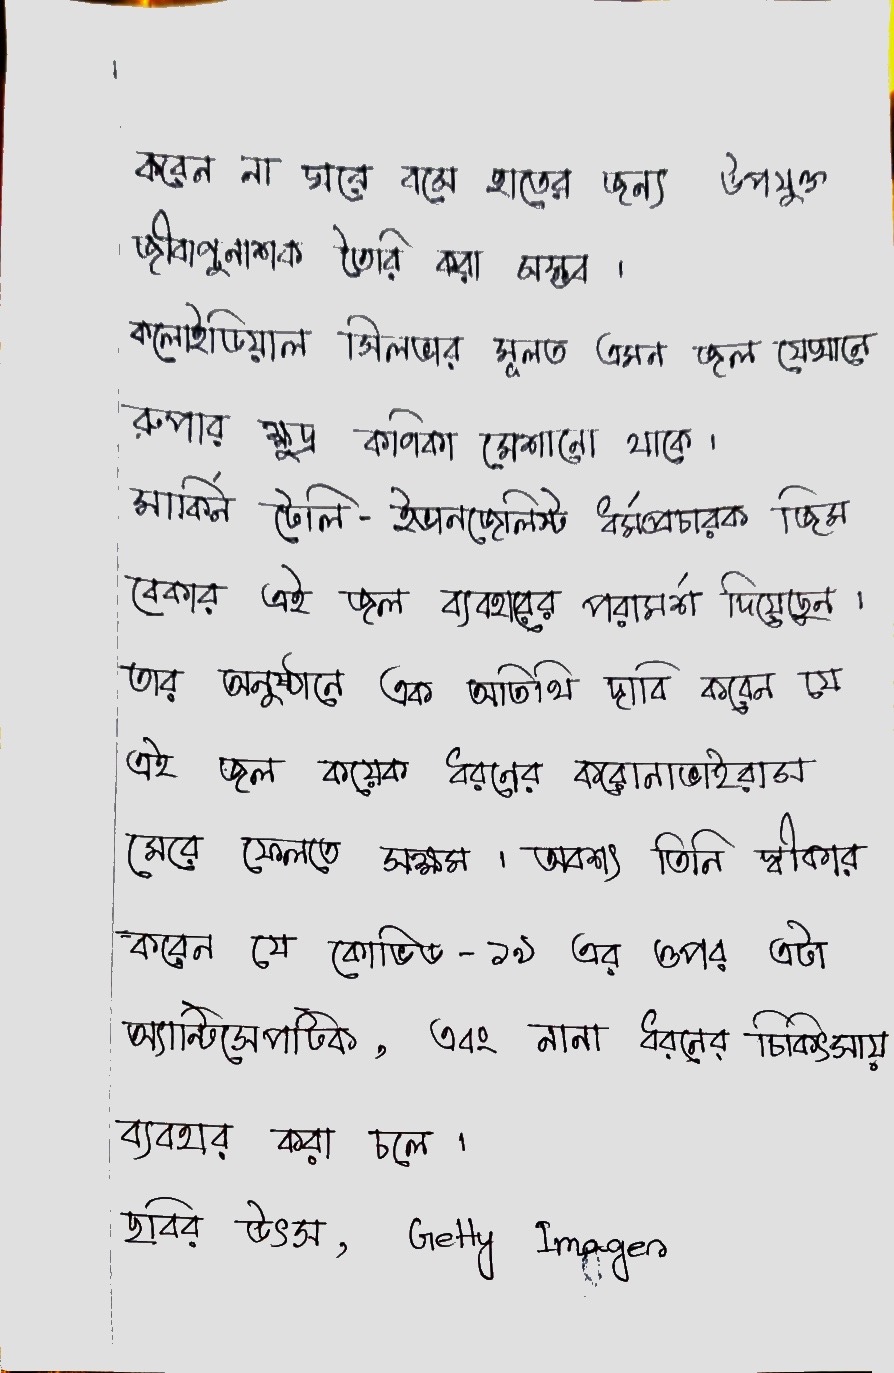 করেন না ঘরে বসে হাতের জন্য উপযুক্ত
জীবাণুনাশক তৈরি করা সম্ভব ।
কলোইডিয়াল সিলভার মূলত এমন জল যেখানে
রুপার ক্ষুদ্র কণিকা মেশানো থাকে ।
মার্কিন টেলি - ইভানজেলিস্ট ধর্মপ্রচারক জিম
বেকার এই জল ব্যবহারের পরামর্শ দিয়েছেন ।
তার অনুষ্ঠানে এক অতিথি দাবি করেন যে
এই জল কয়েক ধরনের করোনাভাইরাস
মেরে ফেলতে সক্ষম । অবশ্য তিনি স্বীকার
করেন যে কোভিড - ১৯ এর ওপর এটা
অ্যান্টিসেপটিক, এবং নানা ধরনের চিকিৎসায়
ব্যবহার করা চলে ।
ছবির উৎস, Getty Images